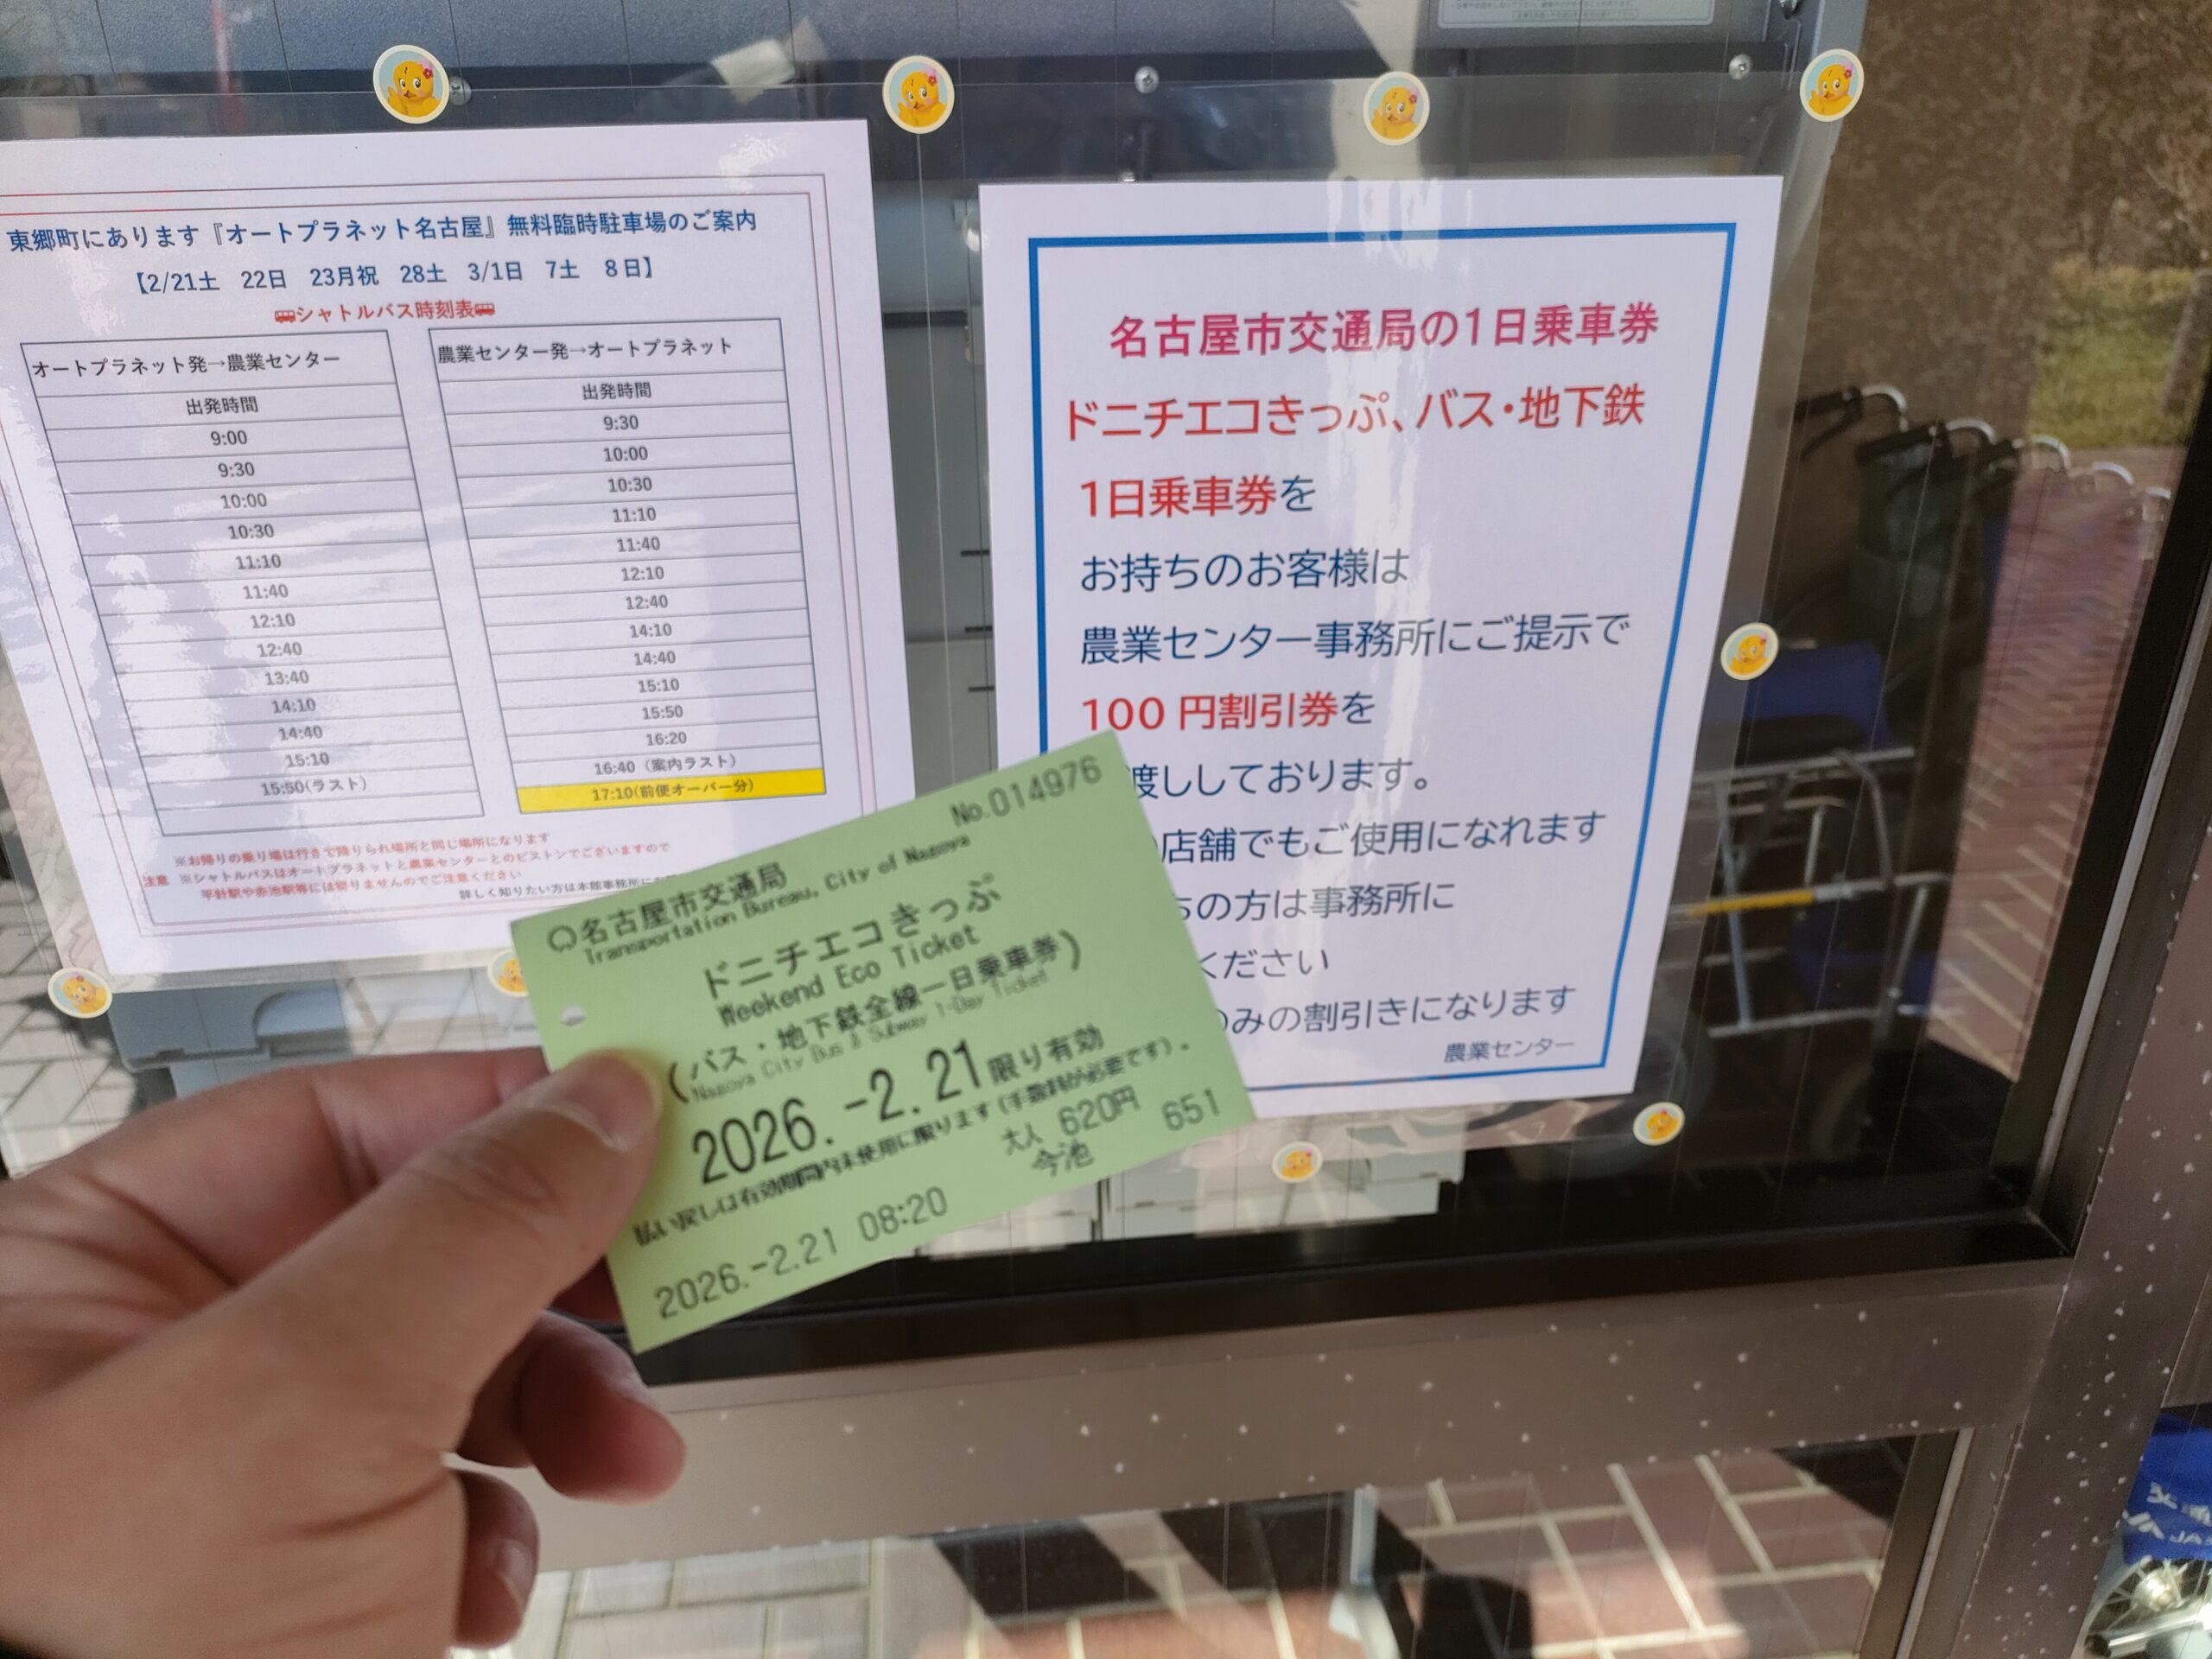 東郷町にあります『オートプラネット名古屋』無料臨時駐車場のご案内
【2/21土 22日 23月祝 28土 3/1日 7土 8日】
シャトルバス時刻表
オートプラネット発→農業センター
出発時間
9:00
9:30
10:00
10:30
11:10
11:40
12:10
12:40
13:40
14:10
14:40
15:10
15:50(ラスト)
農業センター発→オートプラネット
出発時間
9:30
10:00
10:30
11:10
11:40
12:10
12:40
14:10
14:40
15:10
15:50
16:20
16:40（案内ラスト）
17:10(前便オーバー分)
※お帰りの乗り場は行きで降りられ場所と同じ場所になります
注意 ※シャトルバスはオートプラネットと農業センターとのピストンでございますので
平針駅や赤池駅等には回りませんのでご注意ください
詳しく知りたい方は本館事務所に
名古屋市交通局の1日乗車券
ドニチエコきっぷ、バス・地下鉄
1日乗車券を
お持ちのお客様は
農業センター事務所にご提示で
100円割引券を
渡ししております。
店舗でもご使用になれます
の方は事務所に
ください
のみの割引きになります
農業センター
No.014976
名古屋市交通局
Transportation Bureau, City of Nagoya
ドニチエコきっぷ
Weekend Eco Ticket
(バス・地下鉄全線一日乗車券)
Nagoya City Bus & Subway 1-Day Ticket
2026.-2.21限り有効
払い戻しは有効期間内未使用に限ります(手数料が必要です)。
大人 620円
今池 651
2026.-2.21 08:20